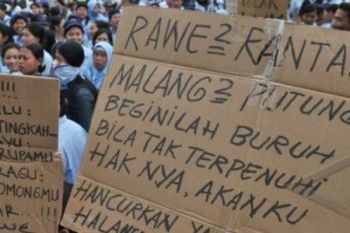 RAWE² RANTA
MALANG² PUTUNG
BEGINILAH BURUH
BILA TAK TERPENUHI
HAK NYA, AKANKU
HANCURKAN YA
HALAN
!!!
ELU :
TINGKAH
AYU :
RUPAMU
LAGU :
OMONGMU